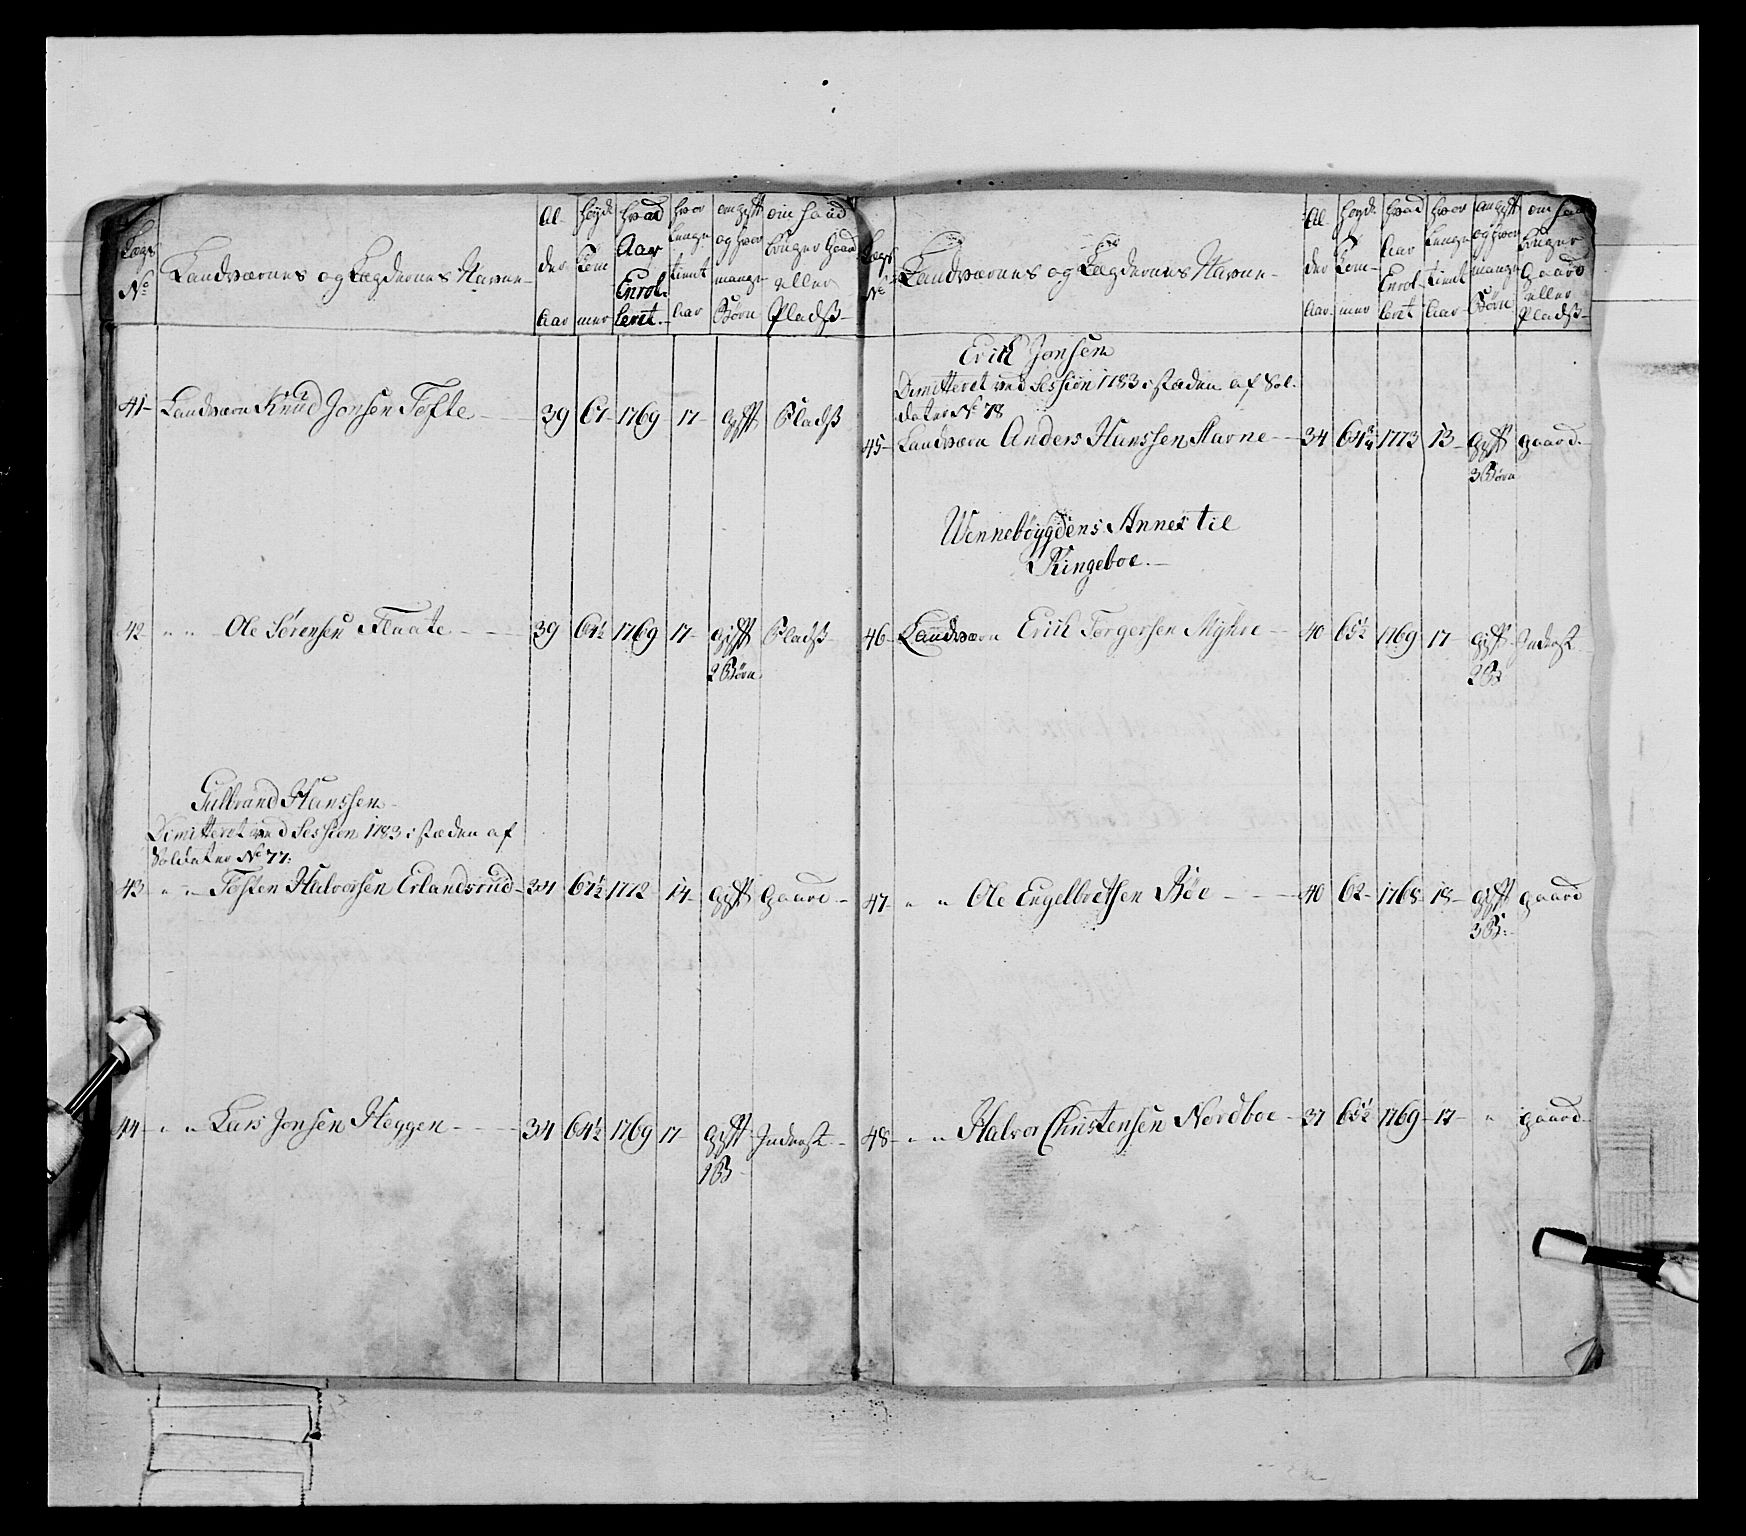 Lægs No
Landværnes og Lægdernes Navne
Al- der Aar
Høyde Tom- mer
Hvad Aar Enrol- leret
Hvor Længe tient Aar
om gift og hvor mange Børn
om hand bruger Gaard eller Plads
41 Landværn Knud Jonsen Tofte 39 67 1769 17 gift Plads
42 " " Ole Sørensen 39 64½ 1769 17 gift Plads
2 Børn
Gulbrand Hanssen
Dimitteret ved Session 1783 i stæden af
Soldater No 77:
43 " " Tosten Halvorsen Erlandsrud 34 64½ 1772 14 gift gaard
44 " " Lars Jonsen Heggen 34 64½ 1769 17 gift Inderst
1 B
Lægs No
Landværnes og Lægdernes Navne
Al- der Aar
Høyde Tom- mer
Hvad Aar Enrol- leret
Hvor Længe tient Aar
om gift og hvor mange Børn
om hand bruger Gaard eller Plads
Erich Jonsen
Dimitteret ved Session 1783 i stæden af Sol-
dater No 78
45 Landværn Anders Hanssen Stavne 34 64¾ 1773 13 gift gaard
3 Børn
Wennebøygdens Annex til
Ringeboe.
46 Landværn Erich Torgersen Myhre 40 65½ 1769 17 gift Inderst
2 B:
47 " " Ole Engelbretsen Bøe 40 62 1768 18 gift gaard
3 B:
48 " " Halvor Christensen Nordboe 37 65½ 1769 17 " gaard